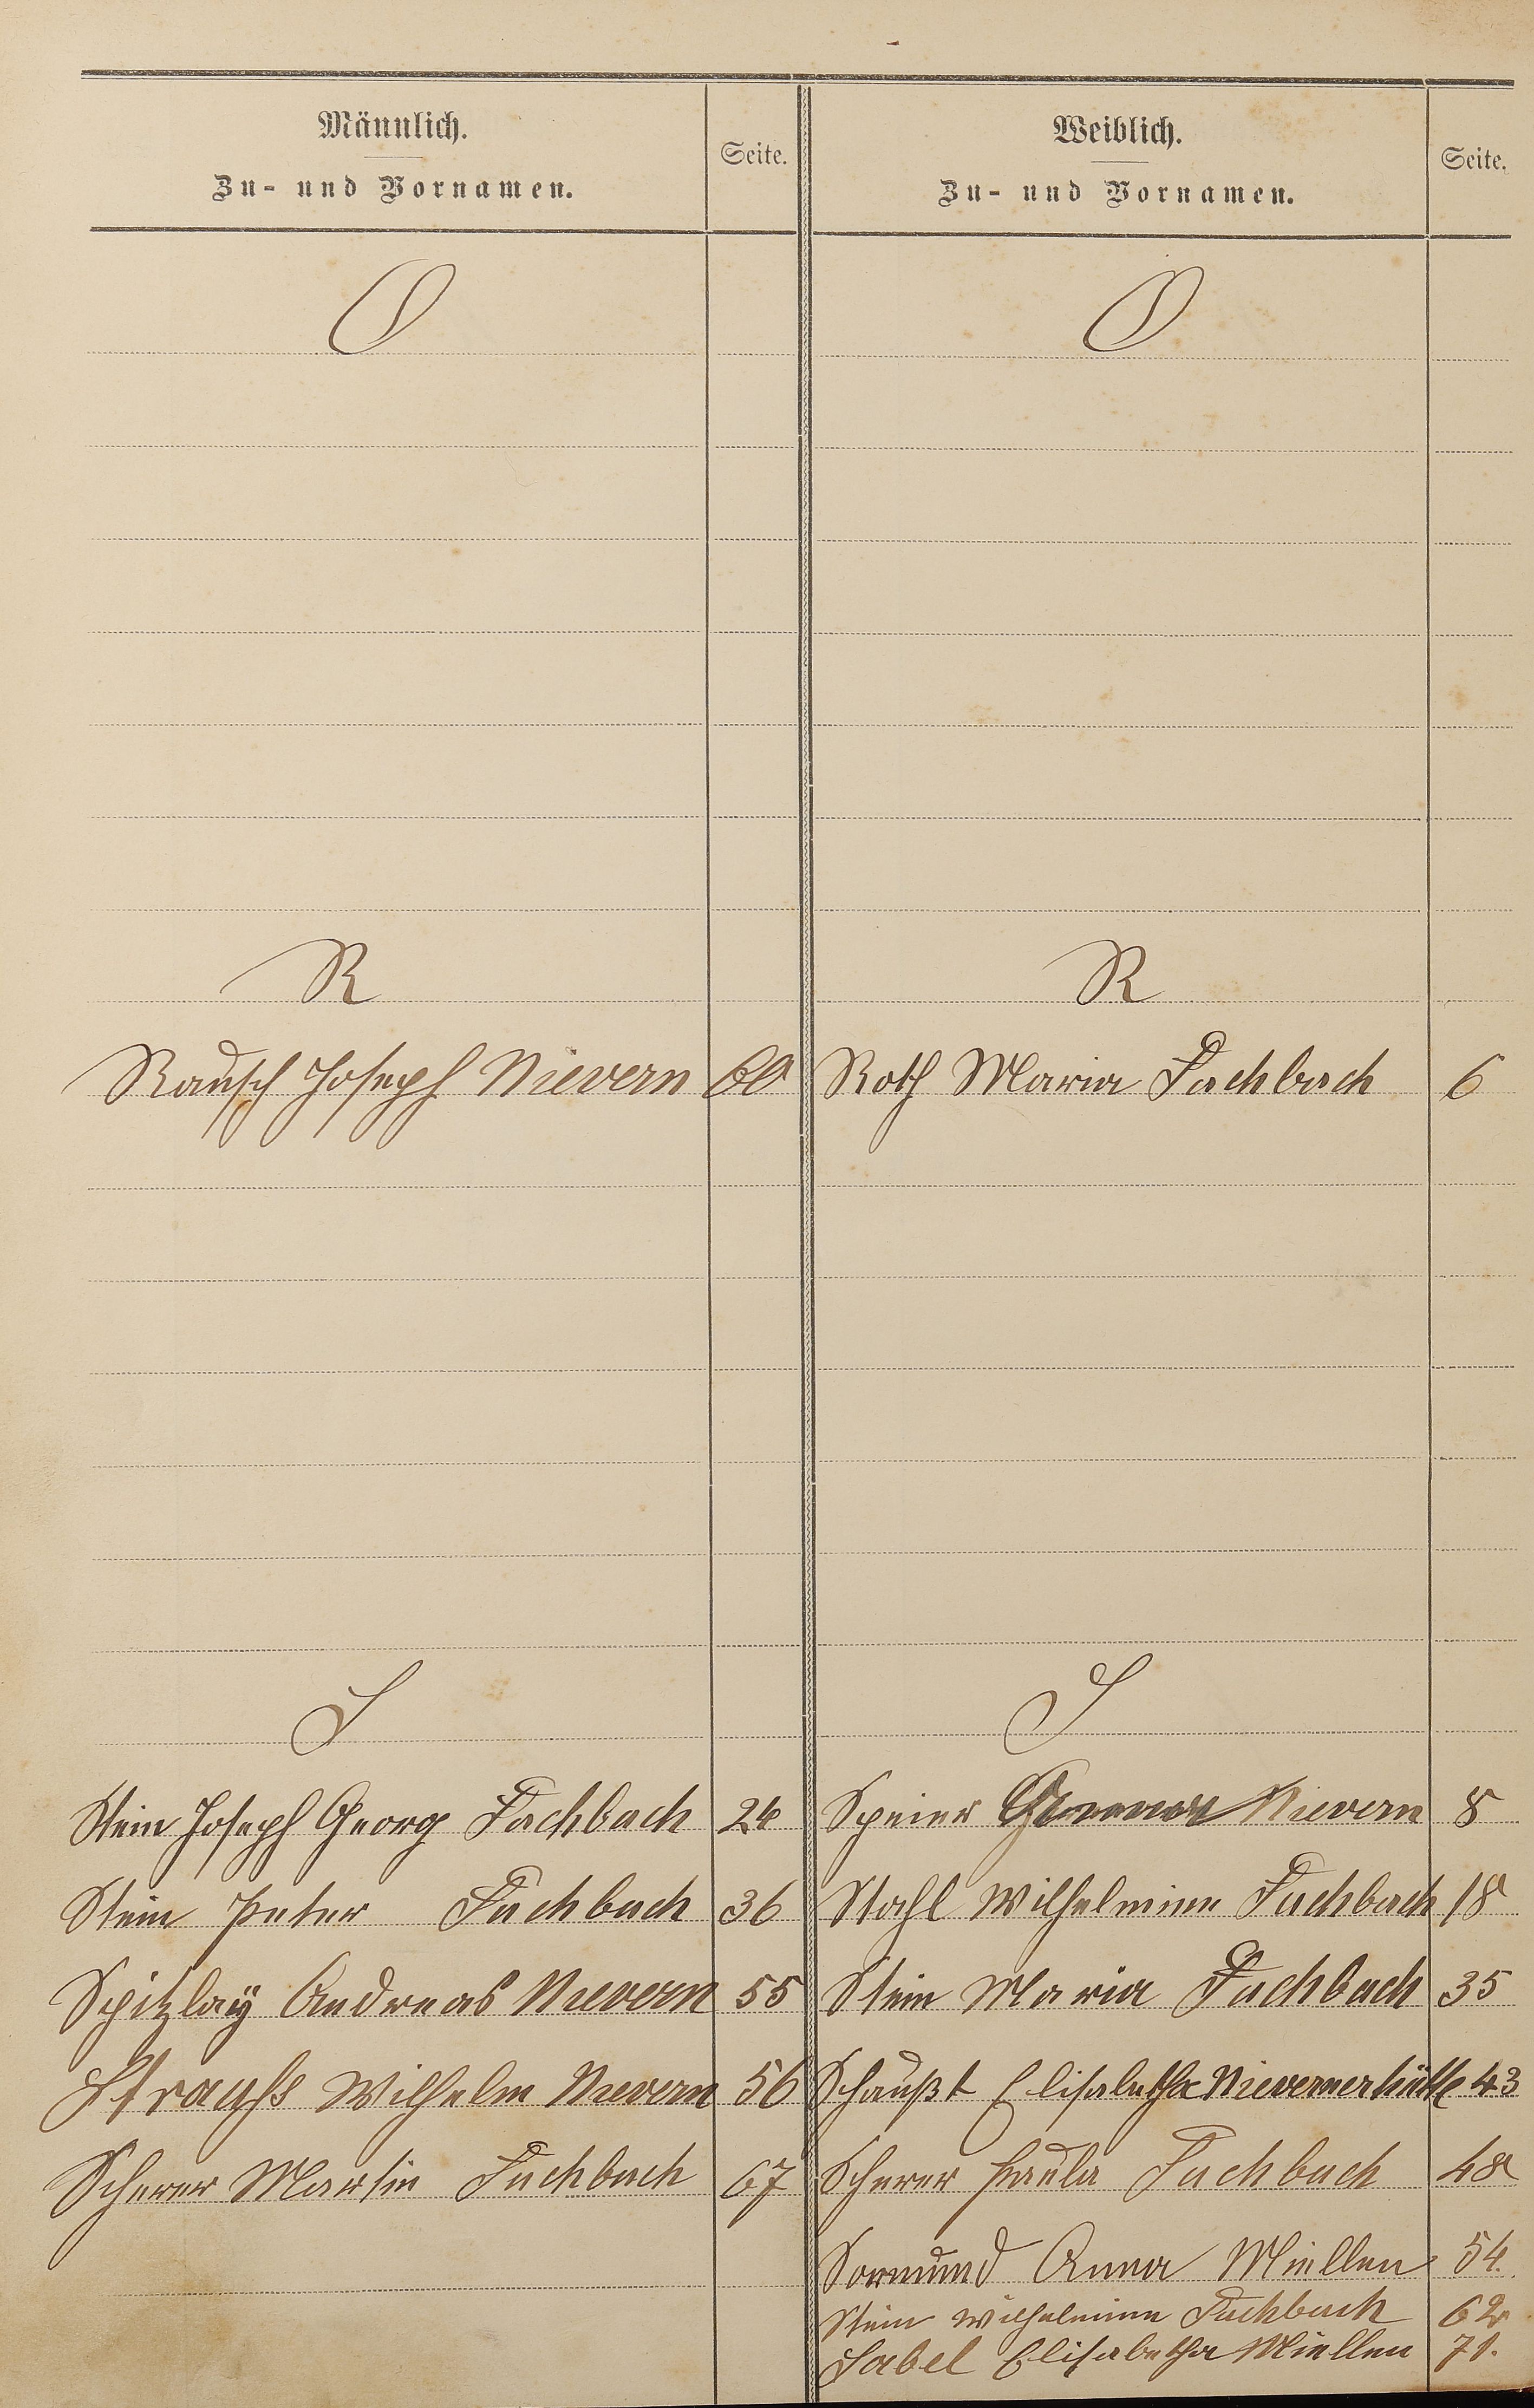 Männlich.
Zu- und Vornamen.
Seite.
O
R
Rausch Joseph Nievern 60
S
Stein Joseph Georg Fachbach 24
Stein Peter Fachbach 36
Spitzlaÿ Andreas Nievern 55
Strauhs Wilhelm Nievern 56
Scherer Martin Fachbach 67
Weiblich.
Zu- und Vornamen.
Seite.
O
R
Roth Maria Fachbach 6
S
Speier Nievern 8
Stahl Wilhelmine Fachbach 18
Stein Maria Fachbach 35
Schaußt Elisabetha Nievernerhütte 43
Scherer Paula Fachbach 48
Anna Miellen 54.
Stein Wilhelmine Fachbach 62
Sabel Elisabetha Miellen 71.